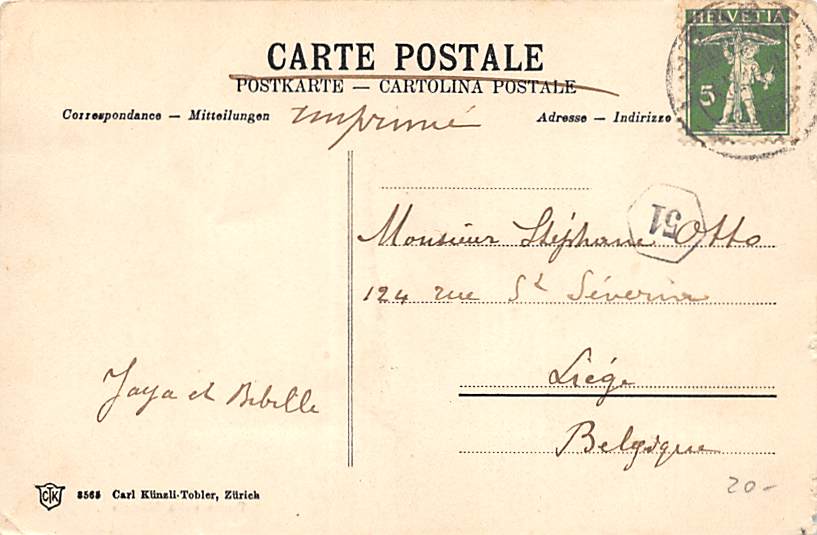 HELVETIA
5
CARTE POSTALE
POSTKARTE — CARTOLINA POSTALE
Correspondance — Mitteilungen
Imprimé
Adresse — Indirizzo
51
Monsieur Stéphane Otto
124 rue St Séverin
Liége
Belgique
Jaya et Bibelle
20-
CTK
8565 Carl Künzli-Tobler, Zürich